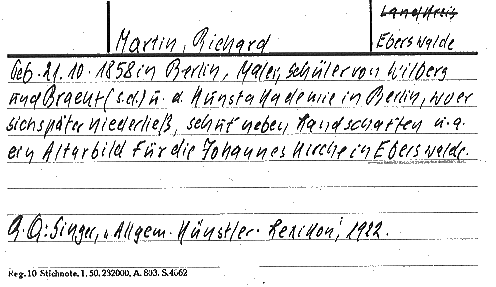 Landkreis
Martin, Richard
Eberswalde
Geb. 21. 10. 1858 in Berlin, Maler, Schüler von Wilberg
und Bracht (s.d.) u. d. Kunstakademie in Berlin, wo er
sich später niederließ, schuf neben Landschaften u.a.
ein Altarbild für die Johannes Kirche in Eberswalde.
Q.: Singer, „Allgem. Künstler-Lexicon", 1922.
Reg. 10 Stichnote. 1. 50. 232000. A. 803. S. 4662